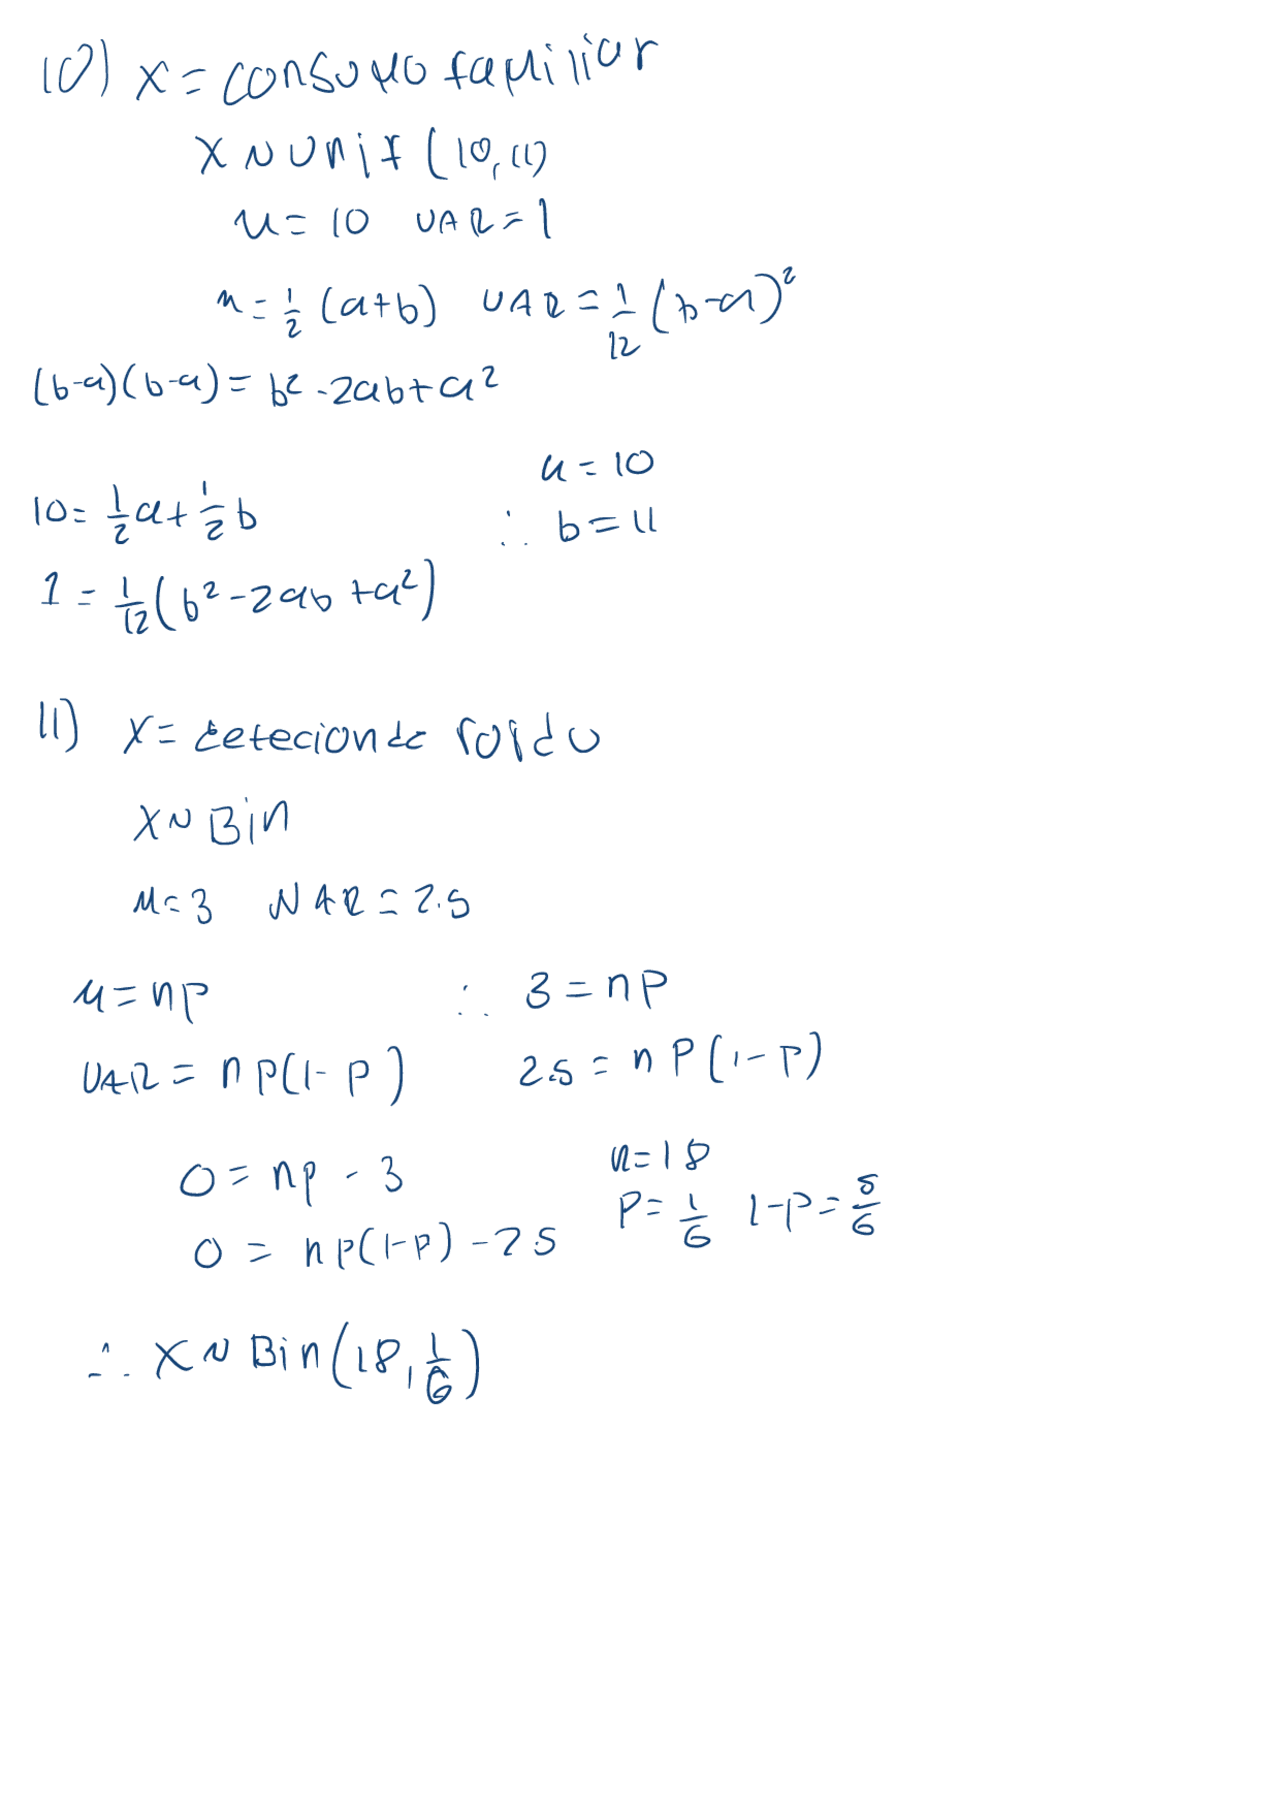 10) X = consumo familiar
X ~ Unif (10, 11)
μ = 10 VAR = 1
μ = 1/2 (a+b) VAR = 1/12 (b-a)²
(b-a)(b-a) = b² - 2ab + a²
a = 10
10 = 1/2 a + 1/2 b ∴ b = 11
1 = 1/12 (b² - 2ab + a²)
11) X = detecion de roido
X ~ Bin
μ = 3 VAR = 2.5
μ = np ∴ 3 = np
VAR = np(1-p) 2.5 = np(1-p)
0 = np - 3 n = 18
0 = np(1-p) - 2.5 P = 1/6 1-p = 5/6
∴ X ~ Bin(18, 1/6)